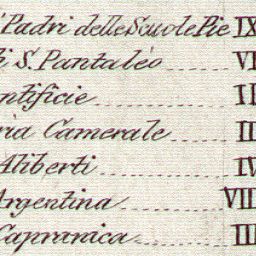 Padri delle Scuole Pie IX
di S. Pantaleo VI
ntificie II
ria Camerale II
Aliberti IV
Argentina VIII
Capranica III